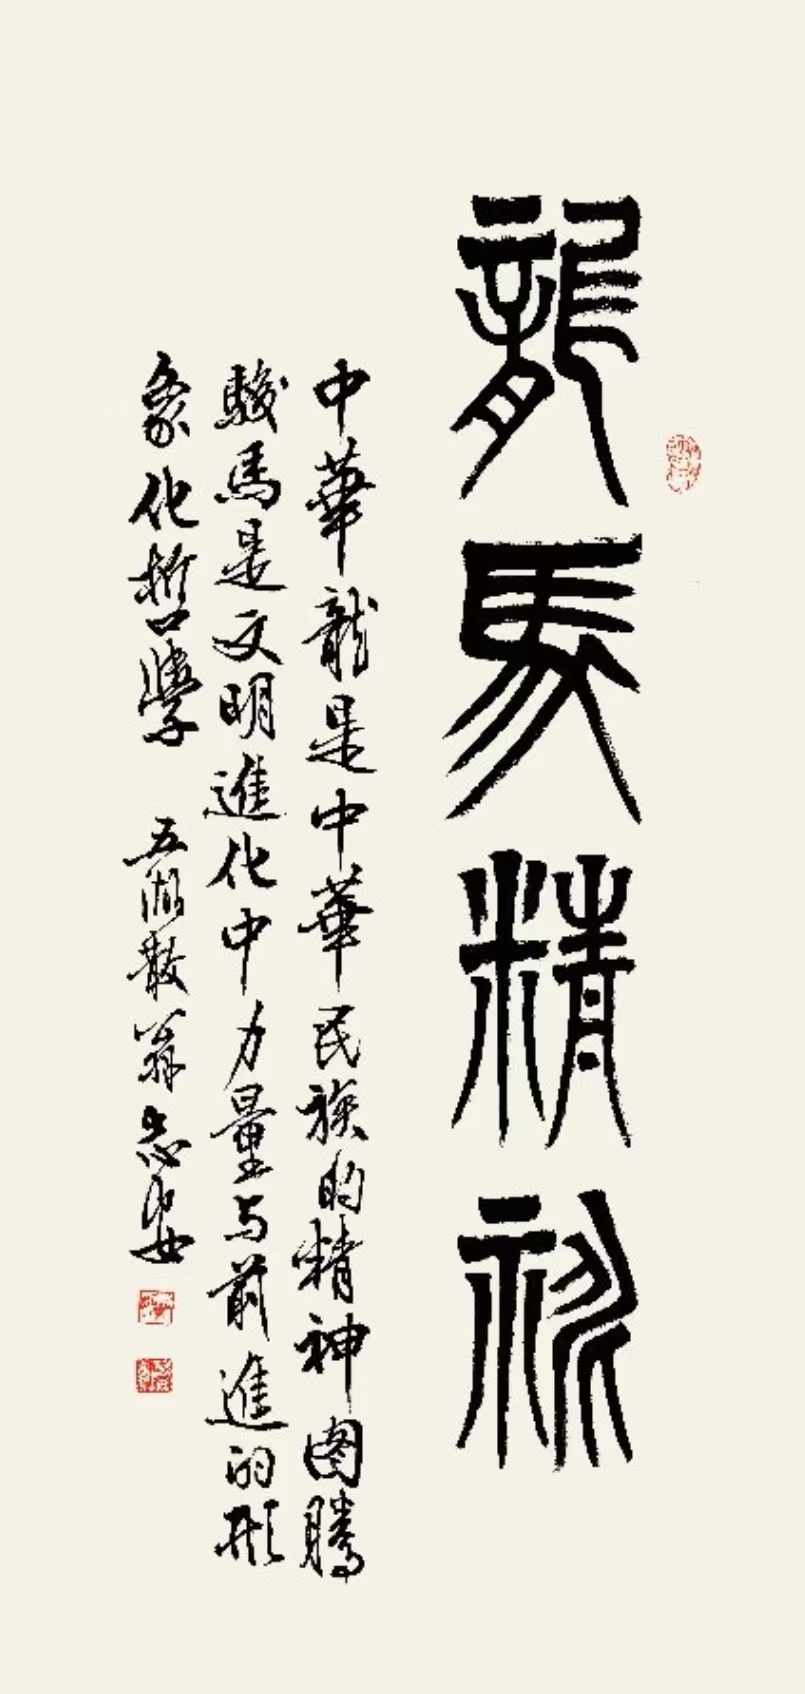 龍馬精神
中華龍是中華民族的精神圖騰
駿馬是文明進化中力量与前進的形
象化哲學 五湖散翁